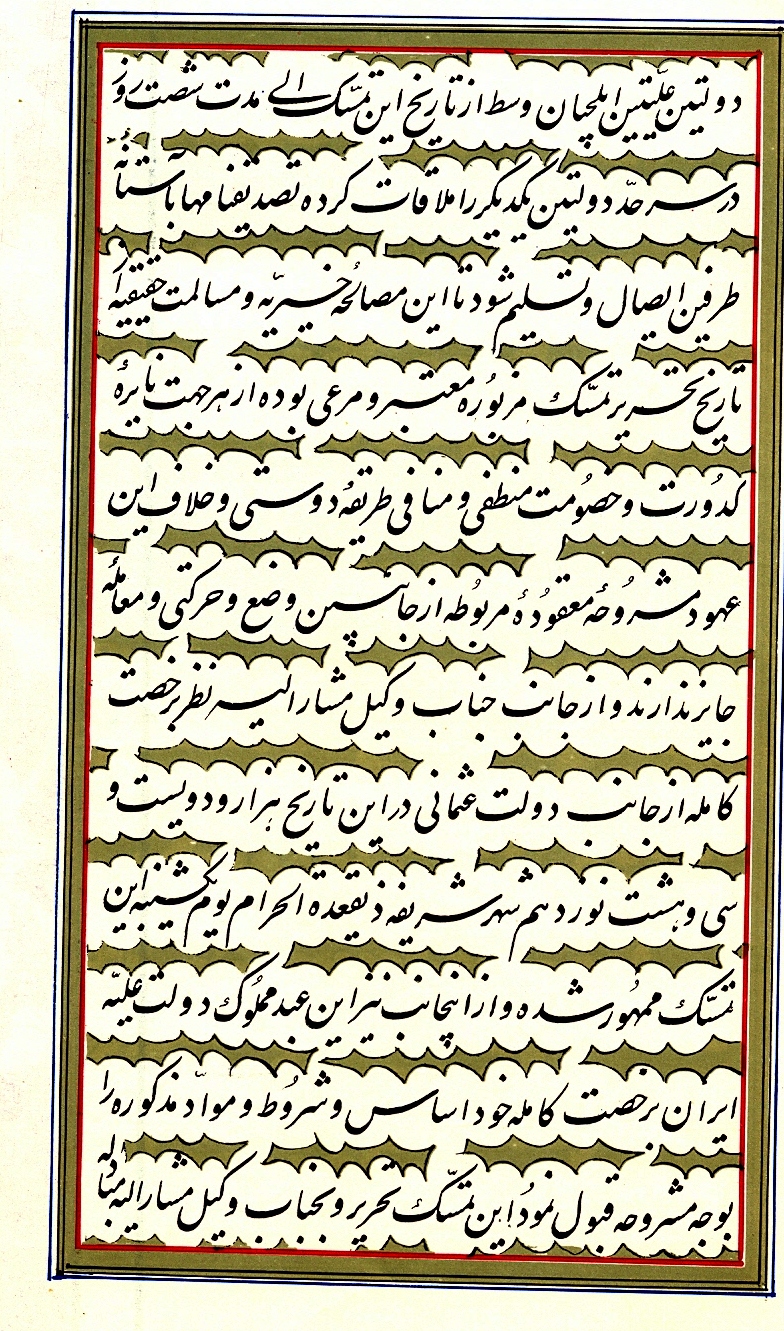 دولتین علیتین ایلچیان وسط از تاریخ این تمسّک الی مدت شصت روز
در سرحدّ دولتین یکدیگر را ملاقات کرده تصدیقنامها باستانهٔ
طرفین ایصال و تسلیم شود تا این مصالحهٔ خیریّه و مسالمت حقیقیه از
تاریخ تحریر تمسّک مزبوره معتبر و مرعی بوده از هر جهت نایرهٔ
کدورت و خصومت منطفی و منافی طریقهٔ دوستی و خلاف این
عهود مشروحهٔ معقودهٔ مربوطه از جانبین وضع و حرکتی و معاملهٔ
جایز ندارند و از جانب جناب وکیل مشار الیه نظر برخصت
کامله از جانب دولت عثمانی در این تاریخ هزار و دویست و
سی و هشت نوزدهم شهر شریفه ذیقعدة الحرام یوم یکشنبه این
تمسّک ممهور شده و از اینجانب نیز این عبد مملوک دولت علیّه
ایران برخصت کامله خود اساس و شروط و موادّ مذکوره را
بوجه مشروحه قبول نمود این تمسّک تحریر و بجناب وکیل مشار الیه مبادله